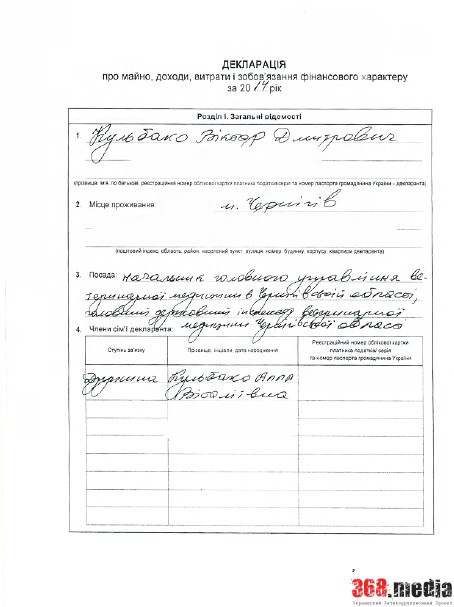 ДЕКЛАРАЦІЯ
про майно, доходи, витрати і зобов'язання фінансового характеру
за 2014 рік
Розділ І. Загальні відомості
1. Кульбако Віктор Дмитрович
(прізвище, ім'я, по батькові, реєстраційний номер облікової картки платника податків/серія та номер паспорта громадянина України - декларанта)
2. Місце проживання: м. Чернігів
(поштовий індекс, область, район, населений пункт, вулиця, номер будинку, корпусу, квартири декларанта)
3. Посада: начальник головного управління ве-
теринарної медицини в Чернігівській області,
головний державний інспектор ветеринарної
медицини Чернігівської
4. Члени сім'ї декларанта:
Ступінь зв'язку
Прізвище, ініціали, дата народження
Реєстраційний номер облікової картки
платника податків/ серія
та номер паспорта громадянина України
Дружина Кульбако Алла
Віталіївна
368.media
Украинский Антикоррупционный Проект